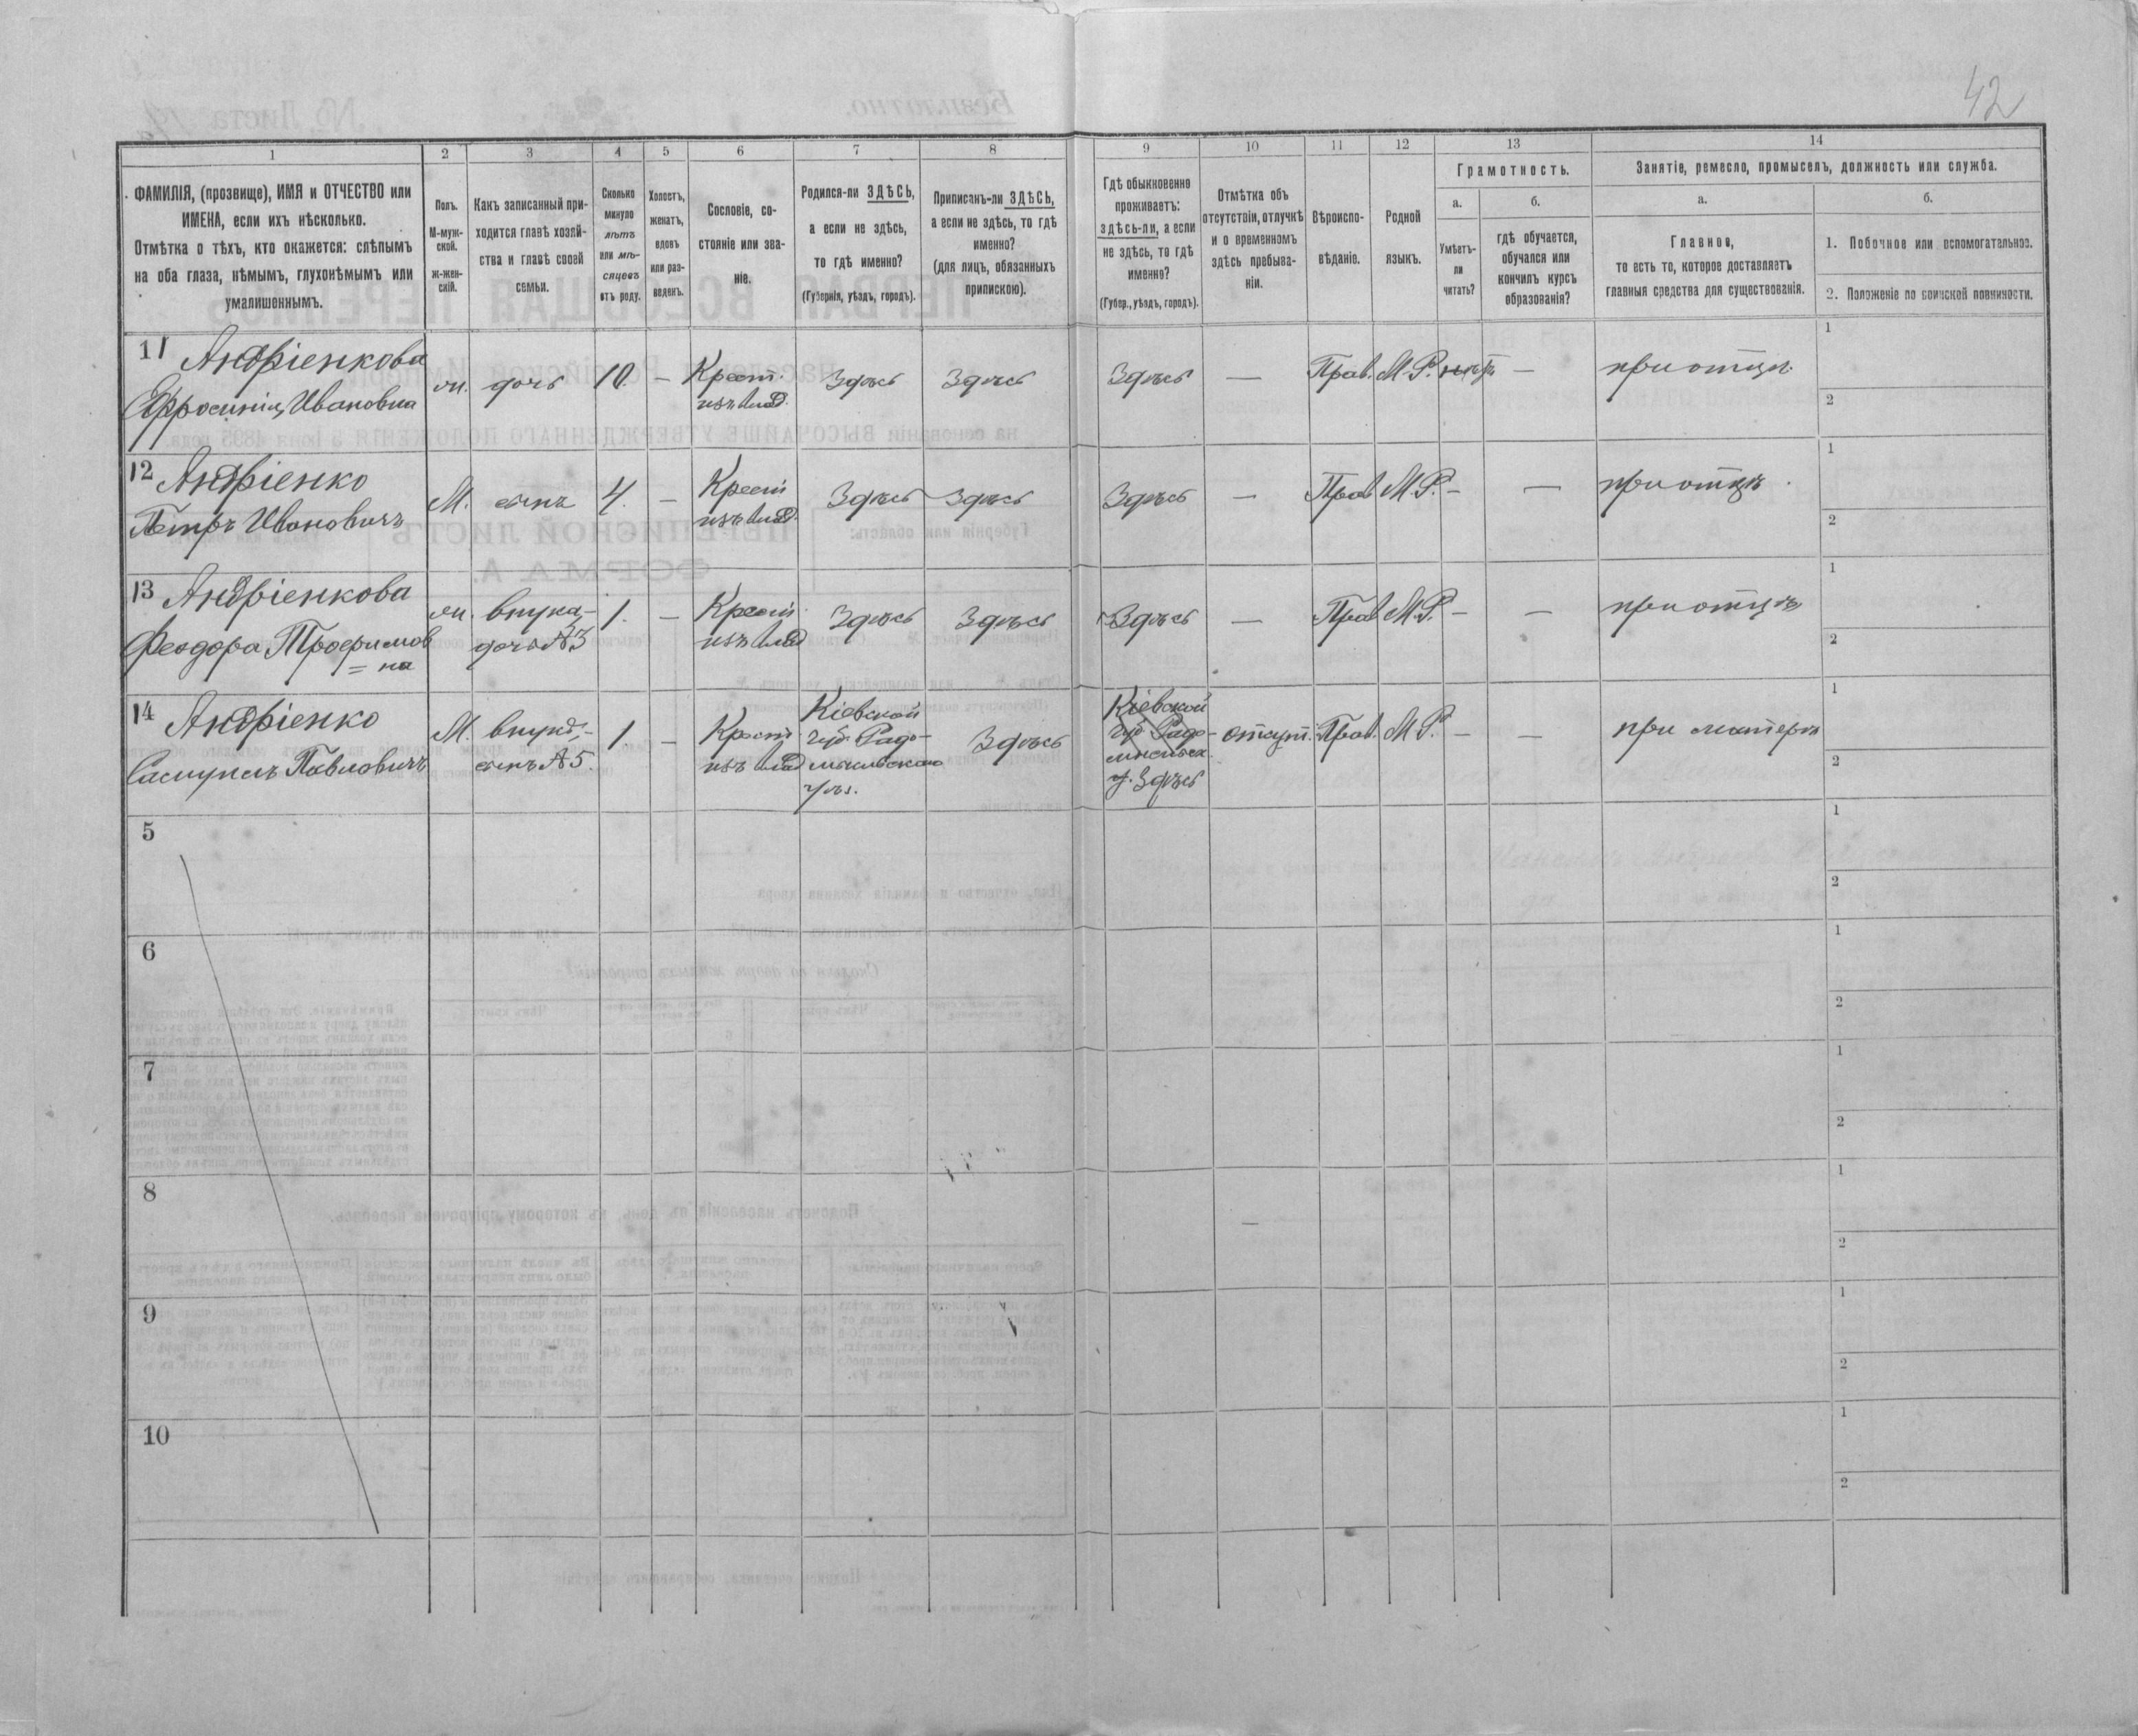 42
1
2
3
4
5
6
7
8
9
10
11
12
13
14
ФАМИЛІЯ, (прозвище), ИМЯ и ОТЧЕСТВО или
ИМЕНА, если ихъ нѣсколько.
Отмѣтка о тѣхъ, кто окажется: слѣпымъ
на оба глаза, нѣмымъ, глухонѣмымъ или
умалишеннымъ.
Полъ.
М-муж-
ской.
Ж-жен-
скій.
Какъ записанный при-
ходится главѣ хозяй-
ства и главѣ своей
семьи.
Сколько
минуло
лѣтъ
или мѣ-
сяцевъ
отъ роду.
Холостъ,
женатъ,
вдовъ
или раз-
веденъ.
Сословіе, со-
стояніе или зва-
ніе.
Родился-ли ЗДѢСЬ,
а если не здѣсь,
то гдѣ именно?
(Губернія, уѣздъ, городъ).
Приписанъ-ли ЗДѢСЬ,
а если не здѣсь, то гдѣ
именно?
(для лицъ, обязанныхъ
припискою).
Гдѣ обыкновенно
проживаетъ:
здѣсь-ли, а если
не здѣсь, то гдѣ
именно?
(Губер., уѣздъ, городъ).
Отмѣтка объ
отсутствіи, отлучкѣ
и о временномъ
здѣсь пребыва-
ніи.
Вѣроиспо-
вѣданіе.
Родной
языкъ.
Грамотность.
а.
Умѣетъ-
ли
читать?
б.
гдѣ обучается,
обучался или
кончилъ курсъ
образованія?
Занятіе, ремесло, промыселъ, должность или служба.
а.
Главное,
то есть то, которое доставляетъ
главныя средства для существованія.
б.
1. Побочное или вспомогательное.
2. Положеніе по воинской повинности.
11 Андріенкова
Ефросинія Ивановна
ж. дочь 10. — Крест. изъ влад. Здѣсь Здѣсь Здѣсь — Прав. М.Р. нѣтъ — при отцѣ.
1
2
12 Андріенко
Петръ Ивановичъ
М. сынъ 4. — Крест. изъ влад. Здѣсь Здѣсь Здѣсь — Прав М.Р. — — при отцѣ.
1
2
13 Андріенкова
Феодора Трофимов
= на
ж. внука, — дочь №3 1. — Крест. изъ влад Здѣсь Здѣсь Здѣсь — Прав М.Р. — — при отцѣ
1
2
14 Андріенко
Самуилъ Павловичъ
М. внукъ, — сынъ №5. 1. — Крест. изъ влад
Кіевской
губ. Радо-
мысльскаго
уѣз.
Здѣсь
Кіевской
губ Радо-
мысльск.
у. Здѣсь
отсут. Прав. М.Р. — — при матери
1
2
5
1
2
6
1
2
7
1
2
8
—
1
2
9
1
2
10
1
2